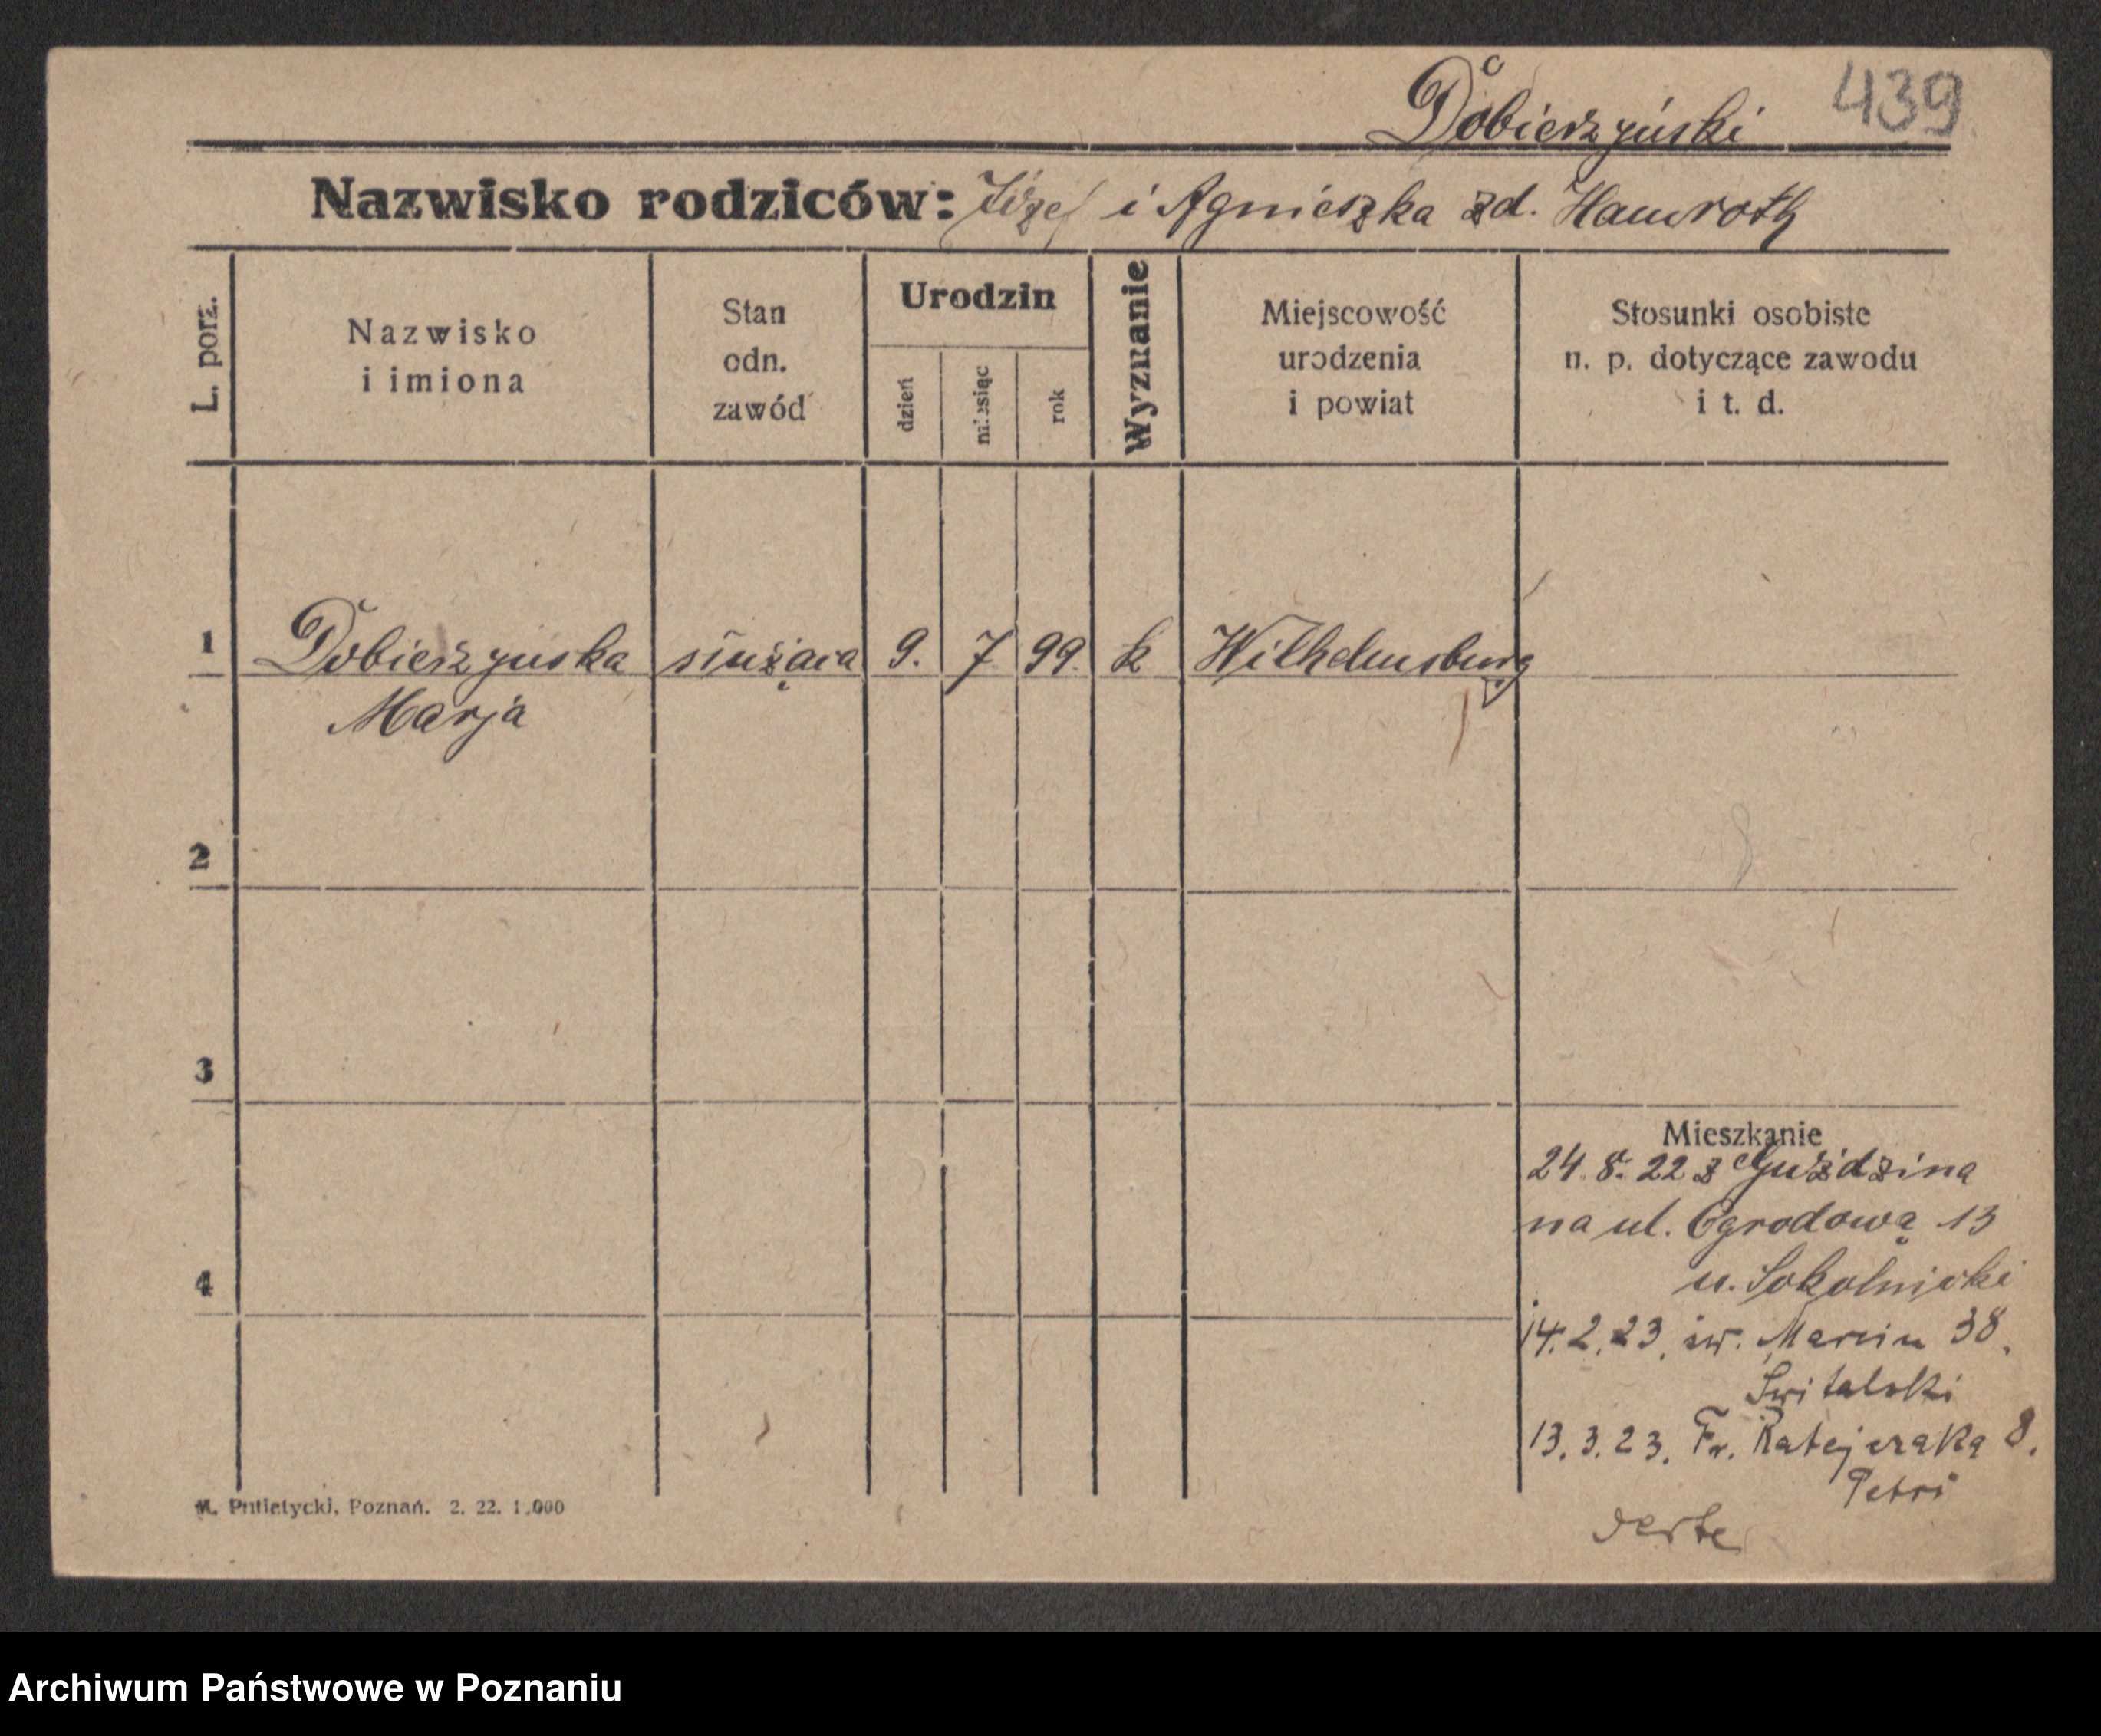 439
Dobierzyński
Nazwisko rodziców: Józef i Agnieszka zd. Hawroth
L. porz.
Nazwisko
i imiona
Stan
odn.
zawód
Urodzin
dzień
miesiąc
rok
Wyznanie
Miejscowość
urodzenia
i powiat
Stosunki osobiste
n. p. dotyczące zawodu
i t. d.
1 Dobierzyńska służąca 9. 7 99. k Wilhelmsburg
Marja
2
3
Mieszkanie
24. 8. 22 z
na ul. Ogrodową 13
u. Sokolnicki
4
14. 2. 23. św. Marcin 38.
Świtalski
13. 3. 23. Fr. Ratajczaka 8.
Petri
M. Putiatycki, Poznań. 2. 22. 1.000
verte
Archiwum Państwowe w Poznaniu